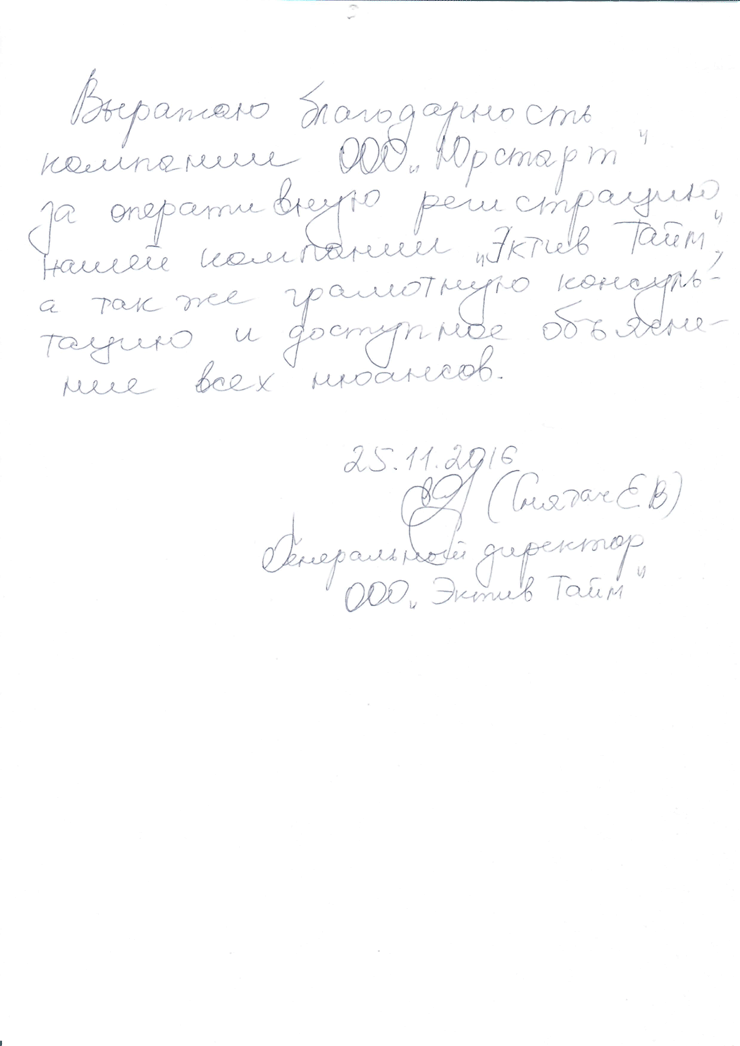 Выражаю благодарность
компании ООО „Юрстарт"
за оперативную регистрацию
нашей компании „Эктив Тайм",
а так же грамотную консуль-
тацию и доступное объясне-
ние всех нюансов.
25.11.2016
(Снятач Е.В)
Генеральный директор
ООО „Эктив Тайм"